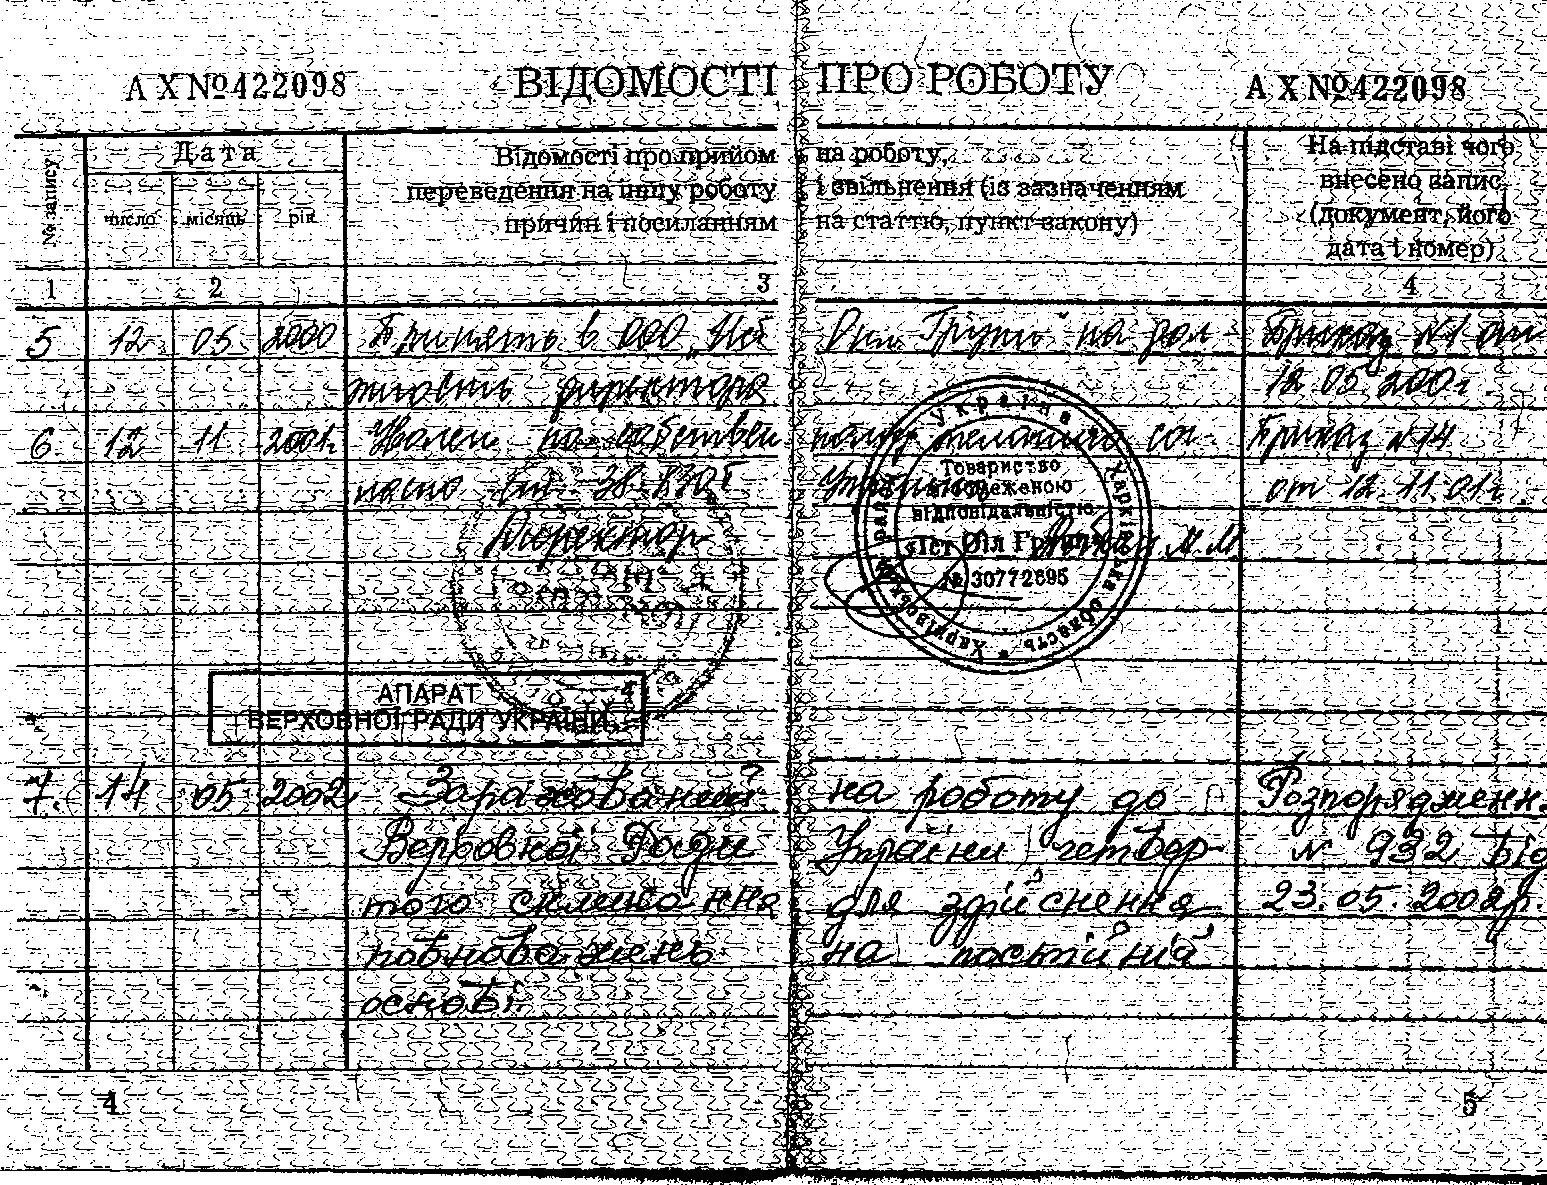 А Х №422098 ВІДОМОСТІ ПРО РОБОТУ А Х №422098
№ запису
Дата
число місяць рік
Відомості про прийом на роботу,
переведення на іншу роботу і звільнення (із зазначенням
причин і посиланням на статтю, пункт закону)
На підставі чого
внесено запис
(документ, його
дата і номер)
1 2 3 4
5 12 05 2000 Принять в ООО „Ист Оил Групп" на дол- Приказ №1 от
жность директора 12.05.200 г.
6. 12 11 2001г. Уволен по собствен ному желанию сог- Приказ №14
ласно ст. 38 КЗоТ Украины от 12.11.01г.
Директор М.М
Україна * Харківська область * Харків
Товариство
з обмеженою
відповідальністю
«Іст Оіл Групп»
№ 30772695
АПАРАТ
ВЕРХОВНОЇ РАДИ УКРАЇНИ
7. 14 05 2002 Зарахований на роботу до Розпорядженн.
Верховної Ради України четвер- № 932 від
того скликання для здійснення 23.05.2002р.
повноважень на постійній
основі.
4 5